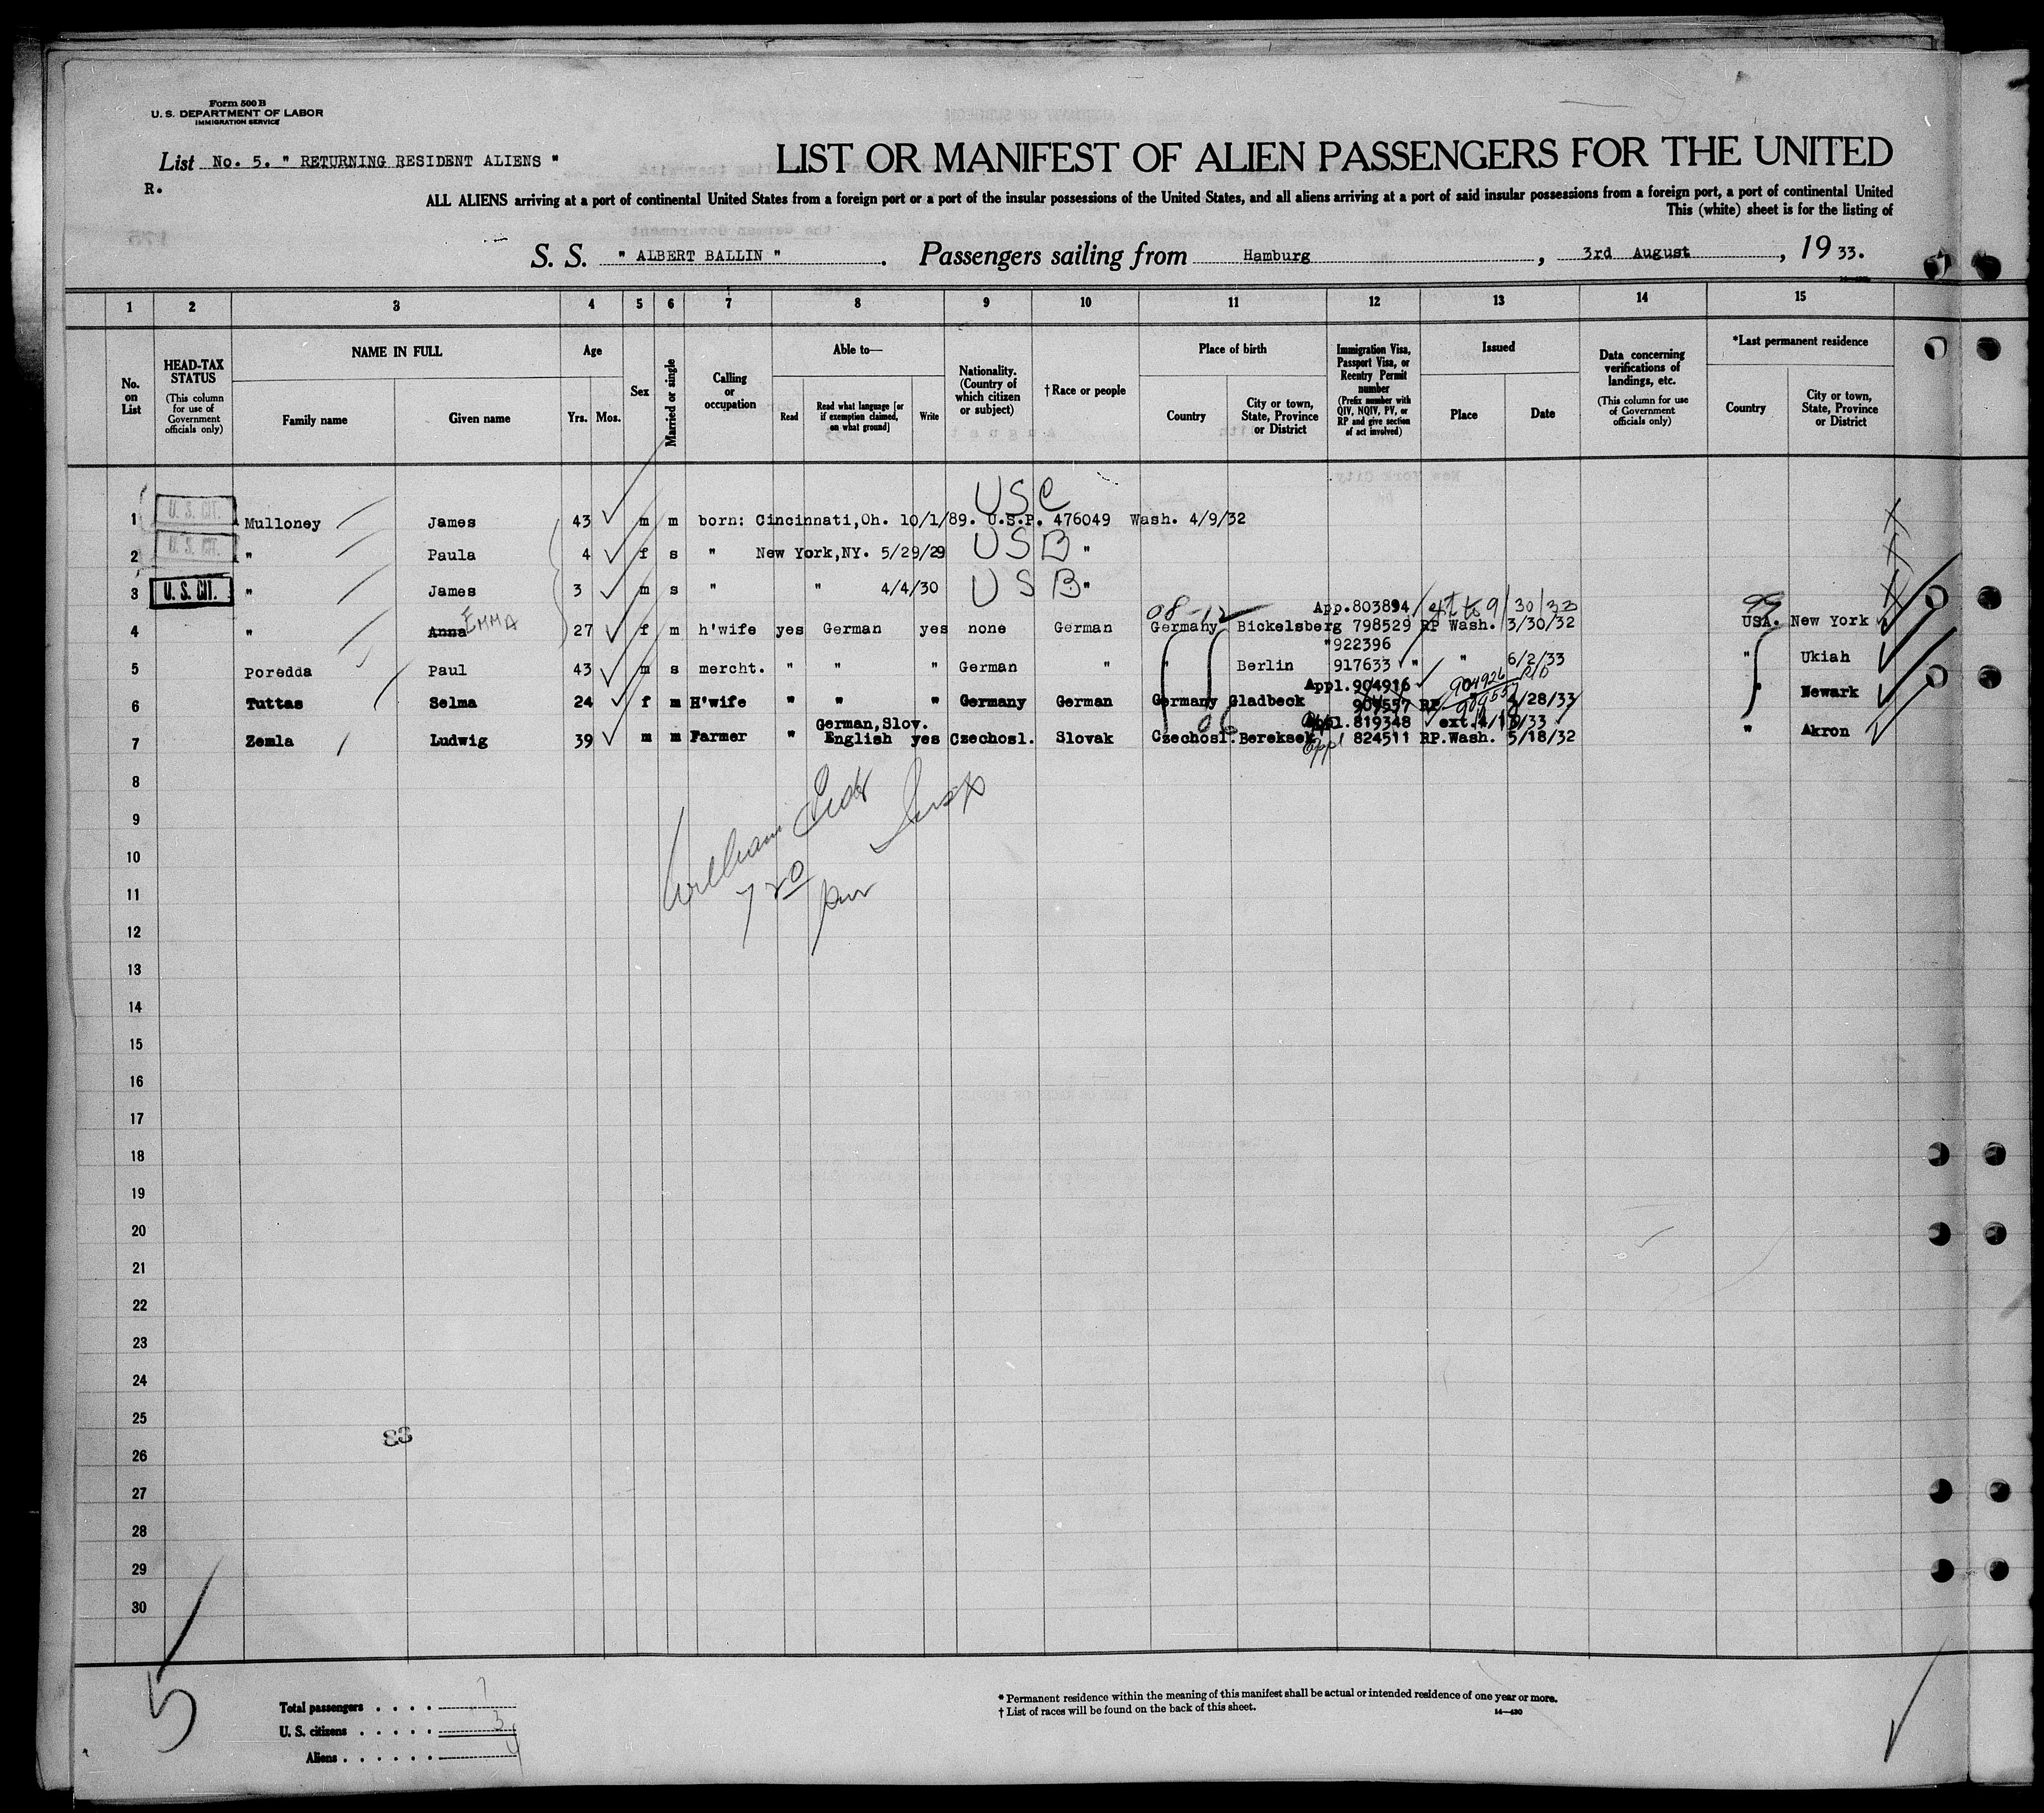 Form 500 B
U. S. DEPARTMENT OF LABOR
IMMIGRATION SERVICE
List No. 5. " RETURNING RESIDENT ALIENS "
R.
LIST OR MANIFEST OF ALIEN PASSENGERS FOR THE UNITED
ALL ALIENS arriving at a port of continental United States from a foreign port or a port of the insular possessions of the United States, and all aliens arriving at a port of said insular possessions from a foreign port, a port of continental United
This (white) sheet is for the listing of
S. S. " ALBERT BALLIN ". Passengers sailing from Hamburg, 3rd August, 19 33.
1 2 3 4 5 6 7 8 9 10 11 12 13 14 15
No. on List
HEAD-TAX STATUS (This column for use of Government officials only)
NAME IN FULL
Family name
Given name
Age
Yrs. Mos.
Sex
Married or single
Calling or occupation
Able to—
Read
Read what language [or if exemption claimed, on what ground]
Write
Nationality. (Country of which citizen or subject)
† Race or people
Place of birth
Country
City or town, State, Province or District
Immigration Visa, Passport Visa, or Reentry Permit number (Prefix number with QIV, NQIV, PV, or RP and give section of act involved)
Issued
Place
Date
Data concerning verifications of landings, etc. (This column for use of Government officials only)
*Last permanent residence
Country
City or town, State, Province or District
USC
1 U. S. CIT. Mulloney James 43 m m born: Cincinnati,Oh. 10/1/89. U.S.P. 476049 Wash. 4/9/32
2 U. S. CIT. " Paula 4 f s " New York,NY. 5/29/29 USB "
3 U. S. CIT. " James 3 m s " " 4/4/30 USB "
08-12 App.803894 9/30/33 99
4 " Anna EMMA 27 f m h'wife yes German yes none German Germany Bickelsberg 798529 RP Wash. 3/30/32 USA. New York
"922396
5 Poredda Paul 43 m s mercht. " " " German " " Berlin 917633 " " 6/2/33 " Ukiah
Appl.904916 904926
6 Tuttas Selma 24 f m H'wife " " " Germany German Germany Gladbeck 909557 RP 909557 /28/33 " Newark
German,Slov. 06 Appl.819348 ext.
7 Zemla Ludwig 39 m m Farmer " English yes Czechosl. Slovak Czechosl. Bereksek Appl 824511 RP.Wash. 5/18/32 " Akron
8
William Insp
9
10
7 20
11
12
13
14
15
16
17
18
19
20
21
22
23
24
25
33
26
27
28
29
30
5
Total passengers . . . . 7
U. S. citizens . . . . . 3
Aliens . . . . . . 4
* Permanent residence within the meaning of this manifest shall be actual or intended residence of one year or more.
† List of races will be found on the back of this sheet.
14—430